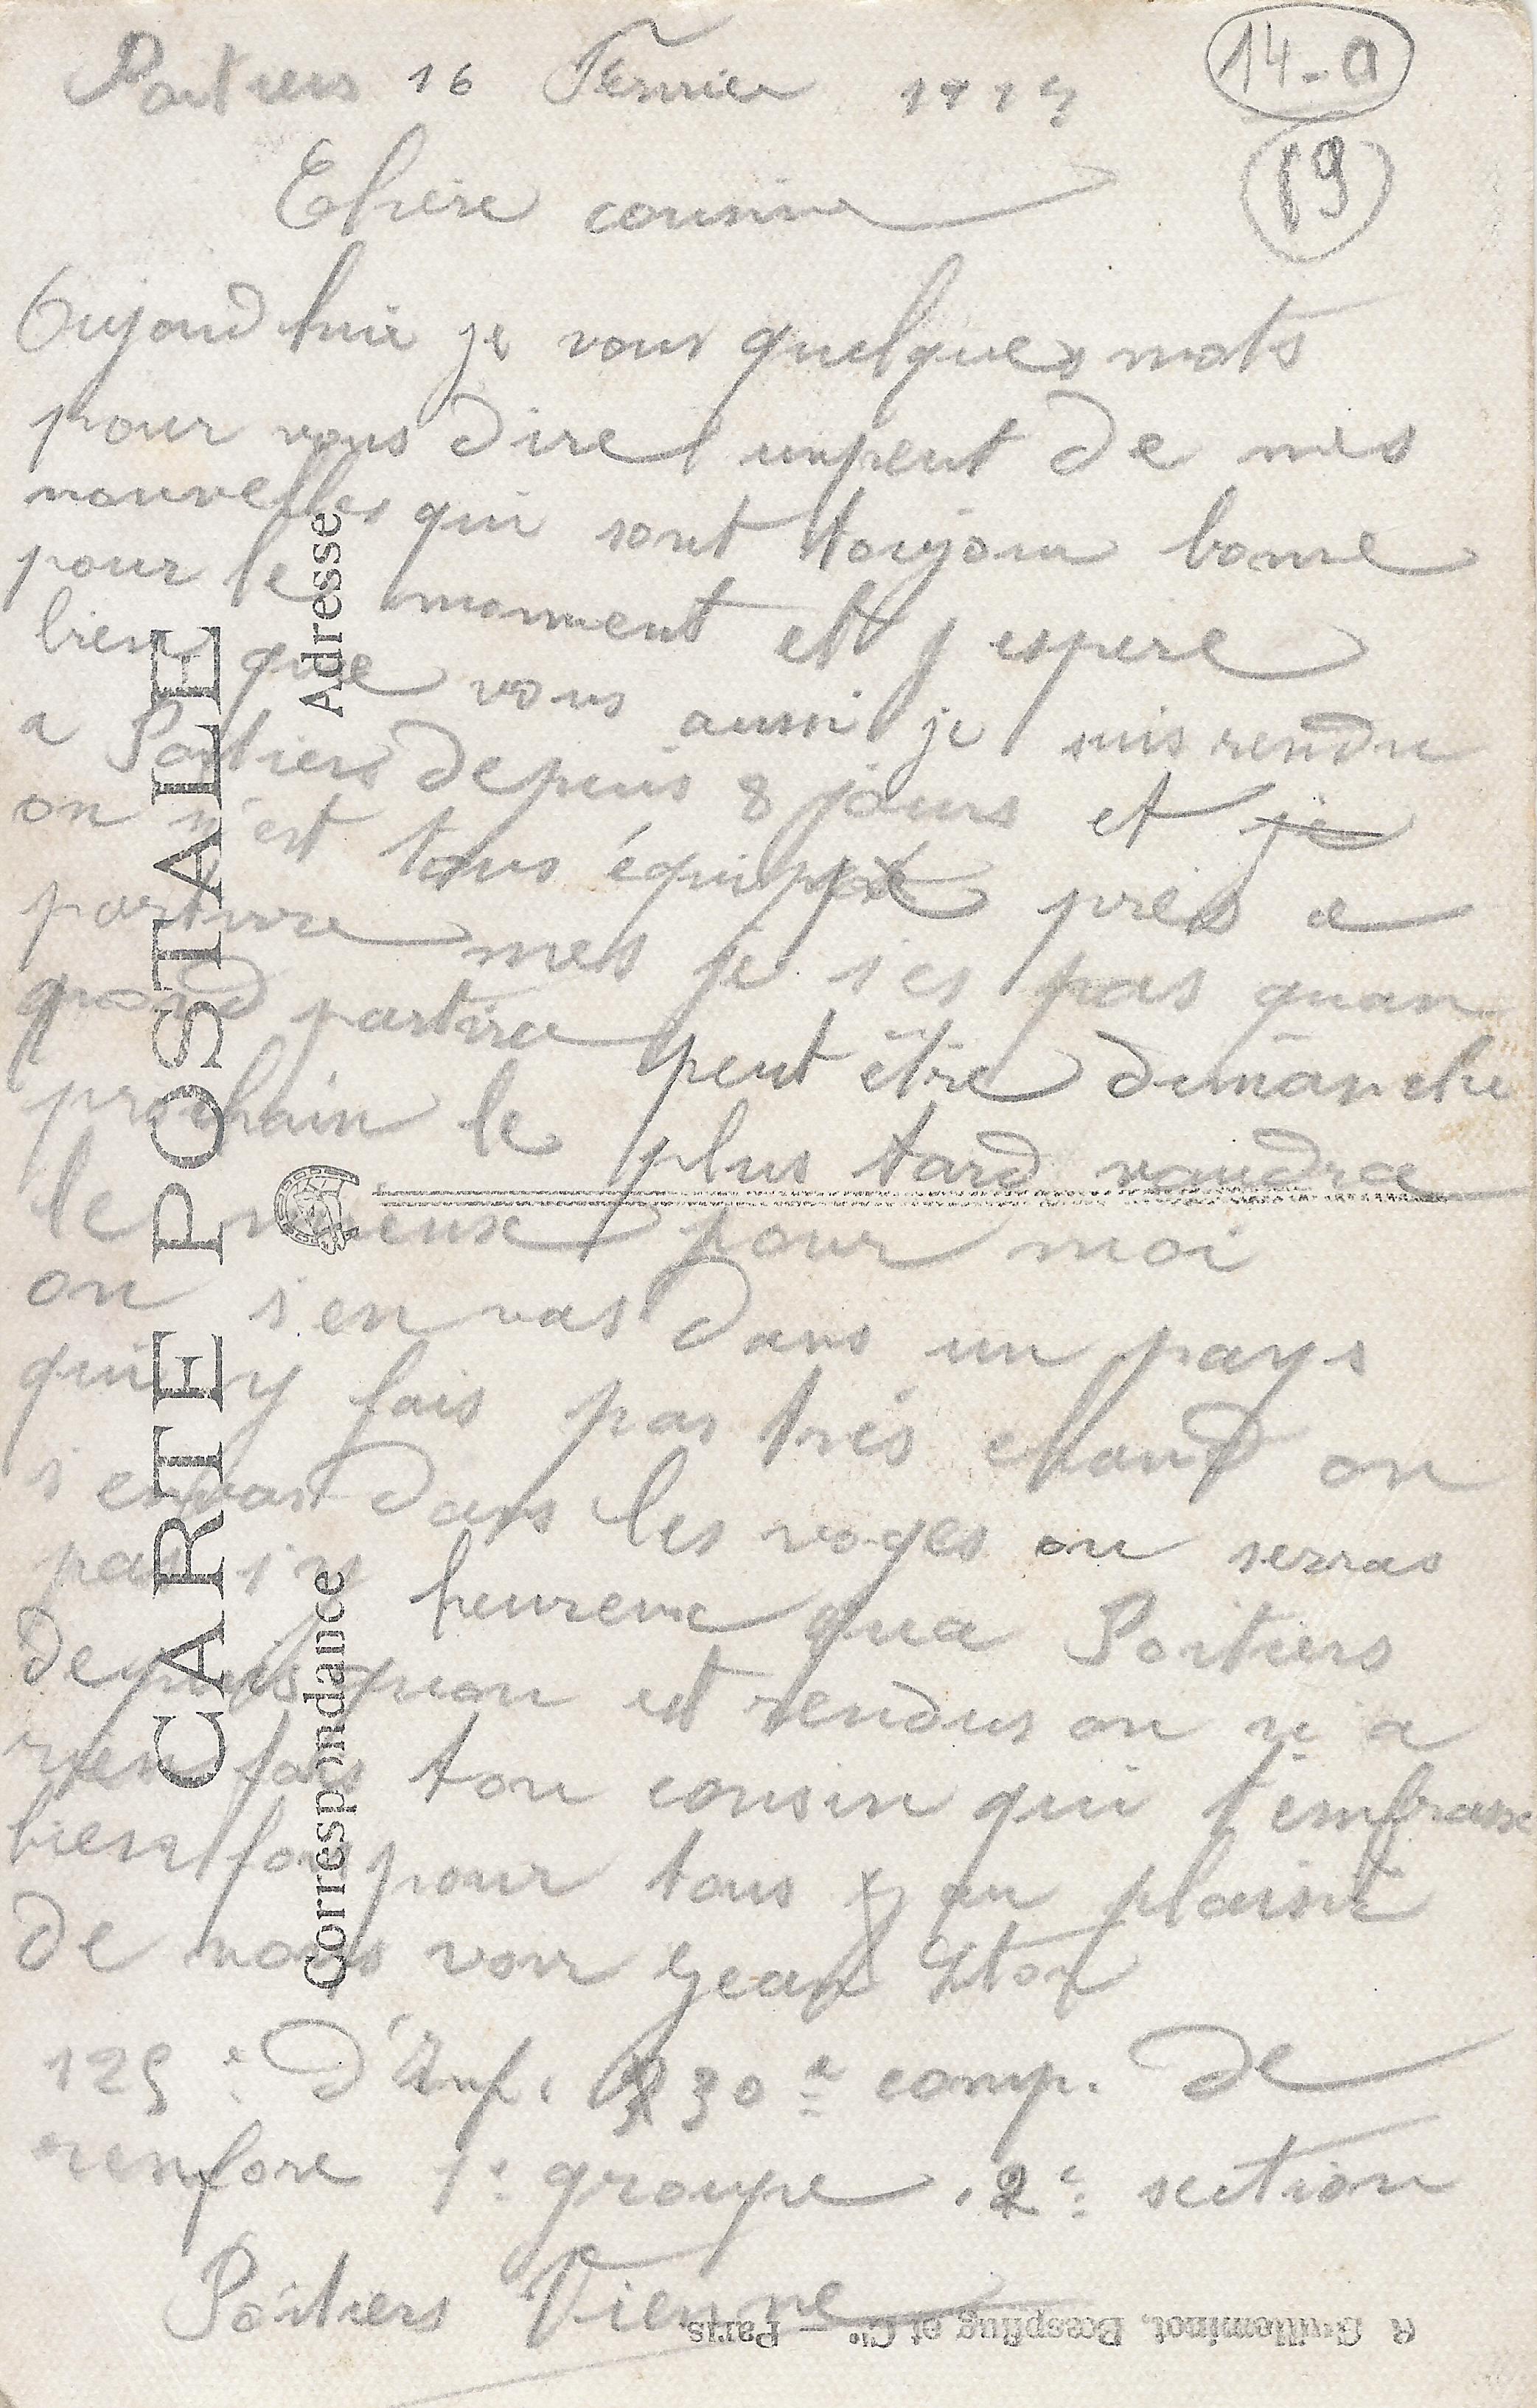 Poitiers 16 Fevrier 1915
14-a
19
Chère cousine
Oujourdhui je vous quelques mots
pour vous dire unpeut de mes
nouvelles qui sont toujour bonne
pour le moment et j espere
bien que vous aussi je suis rendu
a Poitiers depuis 8 jours et je
on n'est tous équippé près a
partire mes je s es pas quan
quond partira peut être dimanche
prochain le plus tard vaudra
le mieux pour moi
on s en vas dans un pays
qui y fais pas très chaud on
s en vas dans les voges on serras
pas si heureux qua Poitiers
depuis quon est rendus on n a
rien fais ton cousin qui t'embrasse
bien fort pour tous au plaisir
de vous voir Jean
125e d'Inf. 30e comp. de
renfore 1e groupe. 2e section
Poitiers Vienne
CARTE POSTALE
Correspondance
Adresse
R. Guilleminot, Bœspflug et Cie — Paris.